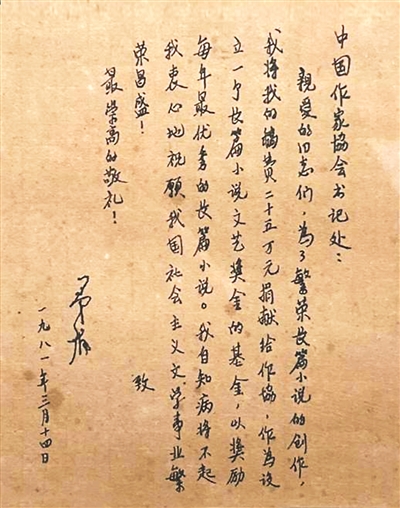 中国作家協会书记处:
親爱的同志们,為了繁荣长篇小说的创作,
我将我的稿费二十五万元捐献给作協,作為设
立一个长篇小说文艺奬金的基金,以奬励
每年最优秀的长篇小说。我自知病将不起
我衷心地祝願我国社会主义文学事业繁
荣昌盛!
致
最崇高的敬礼!
茅盾
一九八一年三月十四日